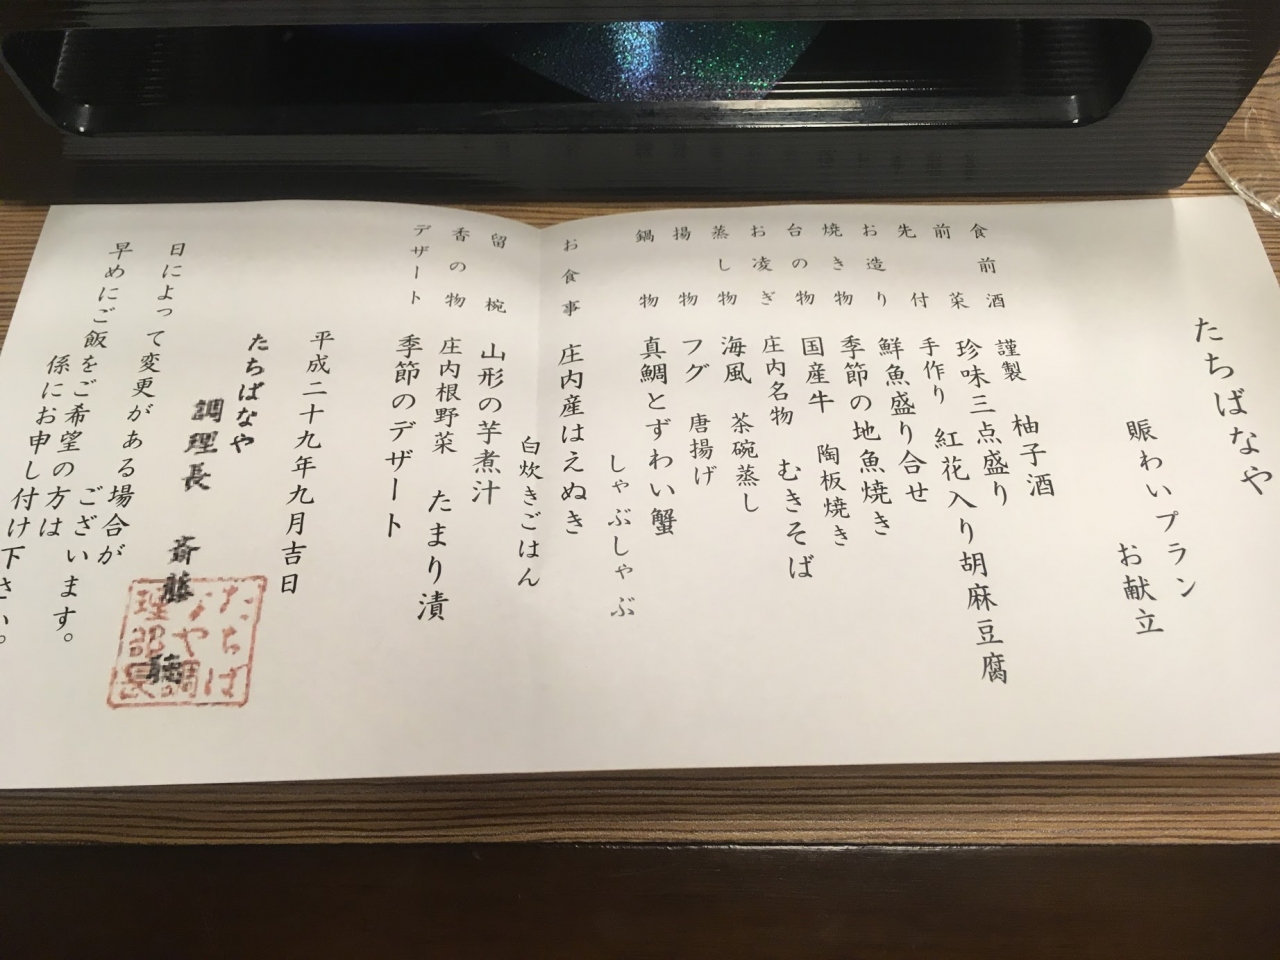 たちばなや
賑わいプラン
お献立
食前酒 謹製 柚子酒
前菜 珍味三点盛り
先付 手作り 紅花入り胡麻豆腐
お造り 鮮魚盛り合せ
焼き物 季節の地魚焼き
台の物 国産牛 陶板焼き
お凌ぎ 庄内名物 むきそば
蒸し物 海風 茶碗蒸し
揚物 フグ 唐揚げ
鍋物 真鯛とずわい蟹
しゃぶしゃぶ
お食事 庄内産はえぬき
白炊きごはん
留椀 山形の芋煮汁
香の物 庄内根野菜 たまり漬
デザート 季節のデザート
平成二十九年九月吉日
たちばなや
調理長 斎藤
たちば
なや調
理部長
日によって変更がある場合が
ございます。
早めにご飯をご希望の方は
係にお申し付け下さい。